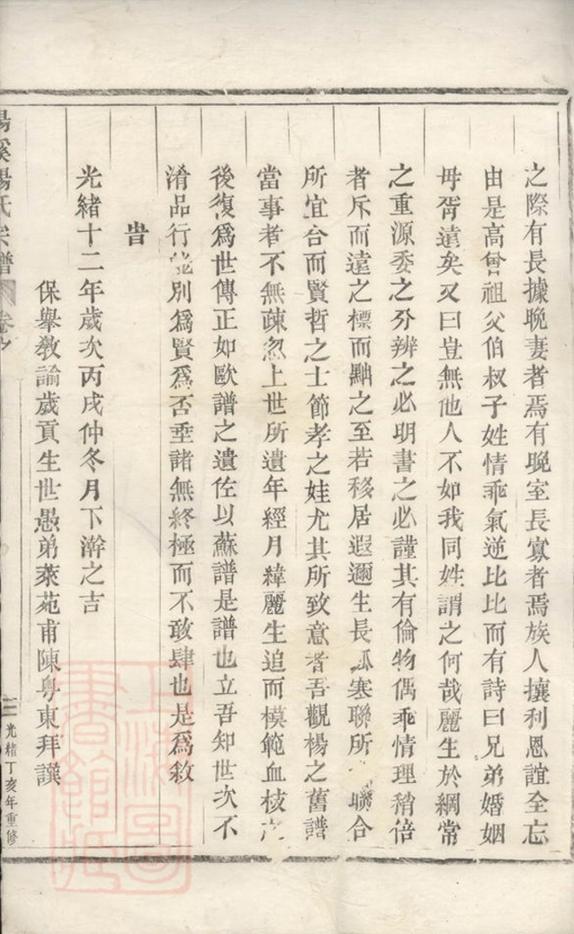 之際有長據晚妻者焉有晚室長寡者焉族人攘利恩誼全忘
由是高曾祖父伯叔子姓情乖氣逆比比而有詩曰兄弟婚姻
毋胥遠矣又曰豈無他人不如我同姓謂之何哉麗生於綱常
之重源委之分辨之必明書之必謹其有倫物偶乖情理稍倍
者斥而遠之標而黜之至若移居遐邇生長孤寒聯所聯合
所宜合而賢哲之士節孝之娃尤其所致意者吾觀楊之舊譜
當事者不無疎忽上世所遺年經月緯麗生追而模範血核
後復爲世傳正如歐譜之遺佐以蘇譜是譜也立吾知世次不
淆品行能別爲賢爲否垂諸無終極而不敢肆也是爲敘
旹
光緒十二年歲次丙戌仲冬月下澣之吉
保舉教諭歲貢生世愚弟萊苑甫陳粵東拜譔
楊氏宗譜
光緒丁亥年重修
上海圖書館藏